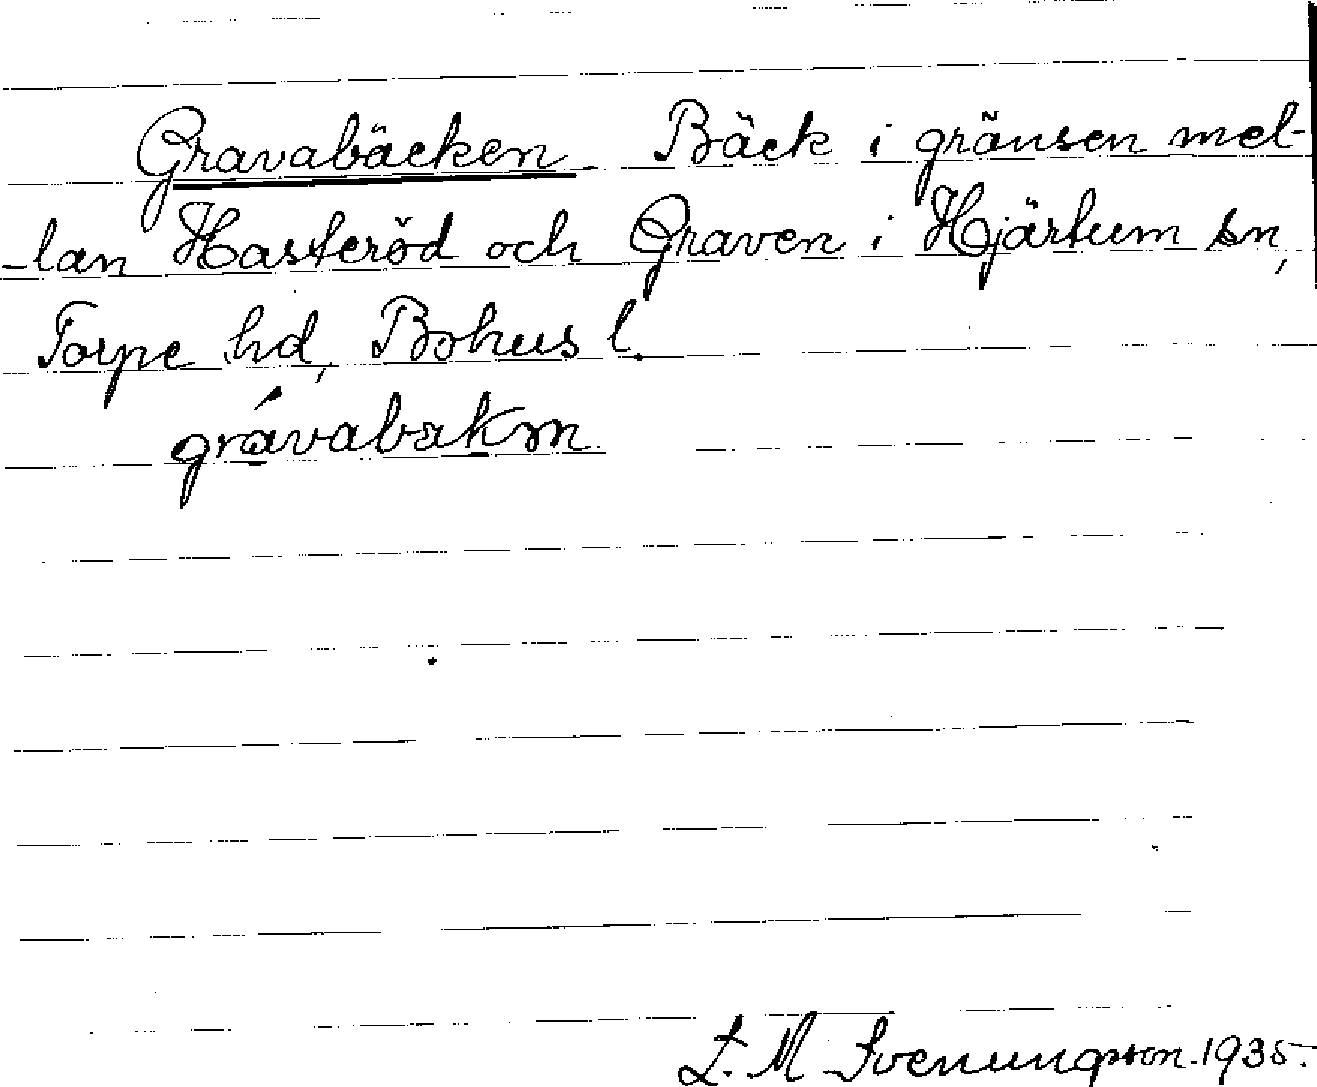 Gravabäcken Bäck i gränsen mel-
lan Hasteröd och Graven i Hjärtum sn,
Torpe hd, Bohus l.
grávabækm
L. M Svenungsson. 1935.